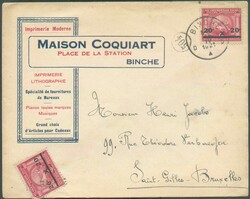 Imprimerie Moderne
MAISON COQUIART
PLACE DE LA STATION
BINCHE
IMPRIMERIE
LITHOGRAPHIE
Spécialité de fournitures
de Bureaux
Pianos toutes marques
Musiques
Grand choix
d'Articles pour Cadeaux
20 20
Monsieur Henri
99 Rue
Saint-Gilles-Bruxelles